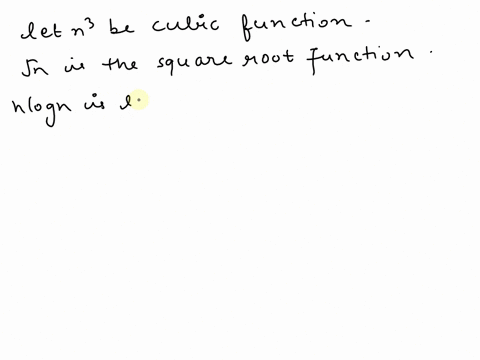 let n³ be cubic function.
√n is the square root function.
nlogn is